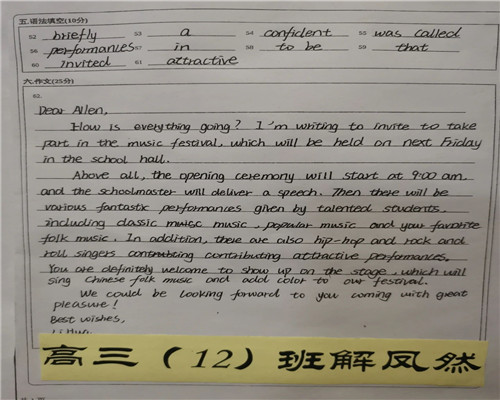 五.语法填空(10分)
52 briefly 53 a 54 confident 55 was called
56 performances 57 in 58 to be 59 that
60 invited 61 attractive
六.作文(25分)
62.
Dear Allen,
How is everything going? I'm writing to invite to take
part in the music festival, which will be held on next Friday
in the school hall.
Above all, the opening ceremony will start at 9:00 am,
and the schoolmaster will deliver a speech. Then there will be
various fantastic performances given by talented students,
including classic music, popular music and your favorite
folk music. In addition, there are also hip-hop and rock and
roll singers contributing attractive performances.
You are definitely welcome to show up on the stage, which will
sing Chinese folk music and add color to our festival.
We could be looking forward to you coming with great
pleasure!
Best wishes,
Li Hua
高三（12）班解凤然